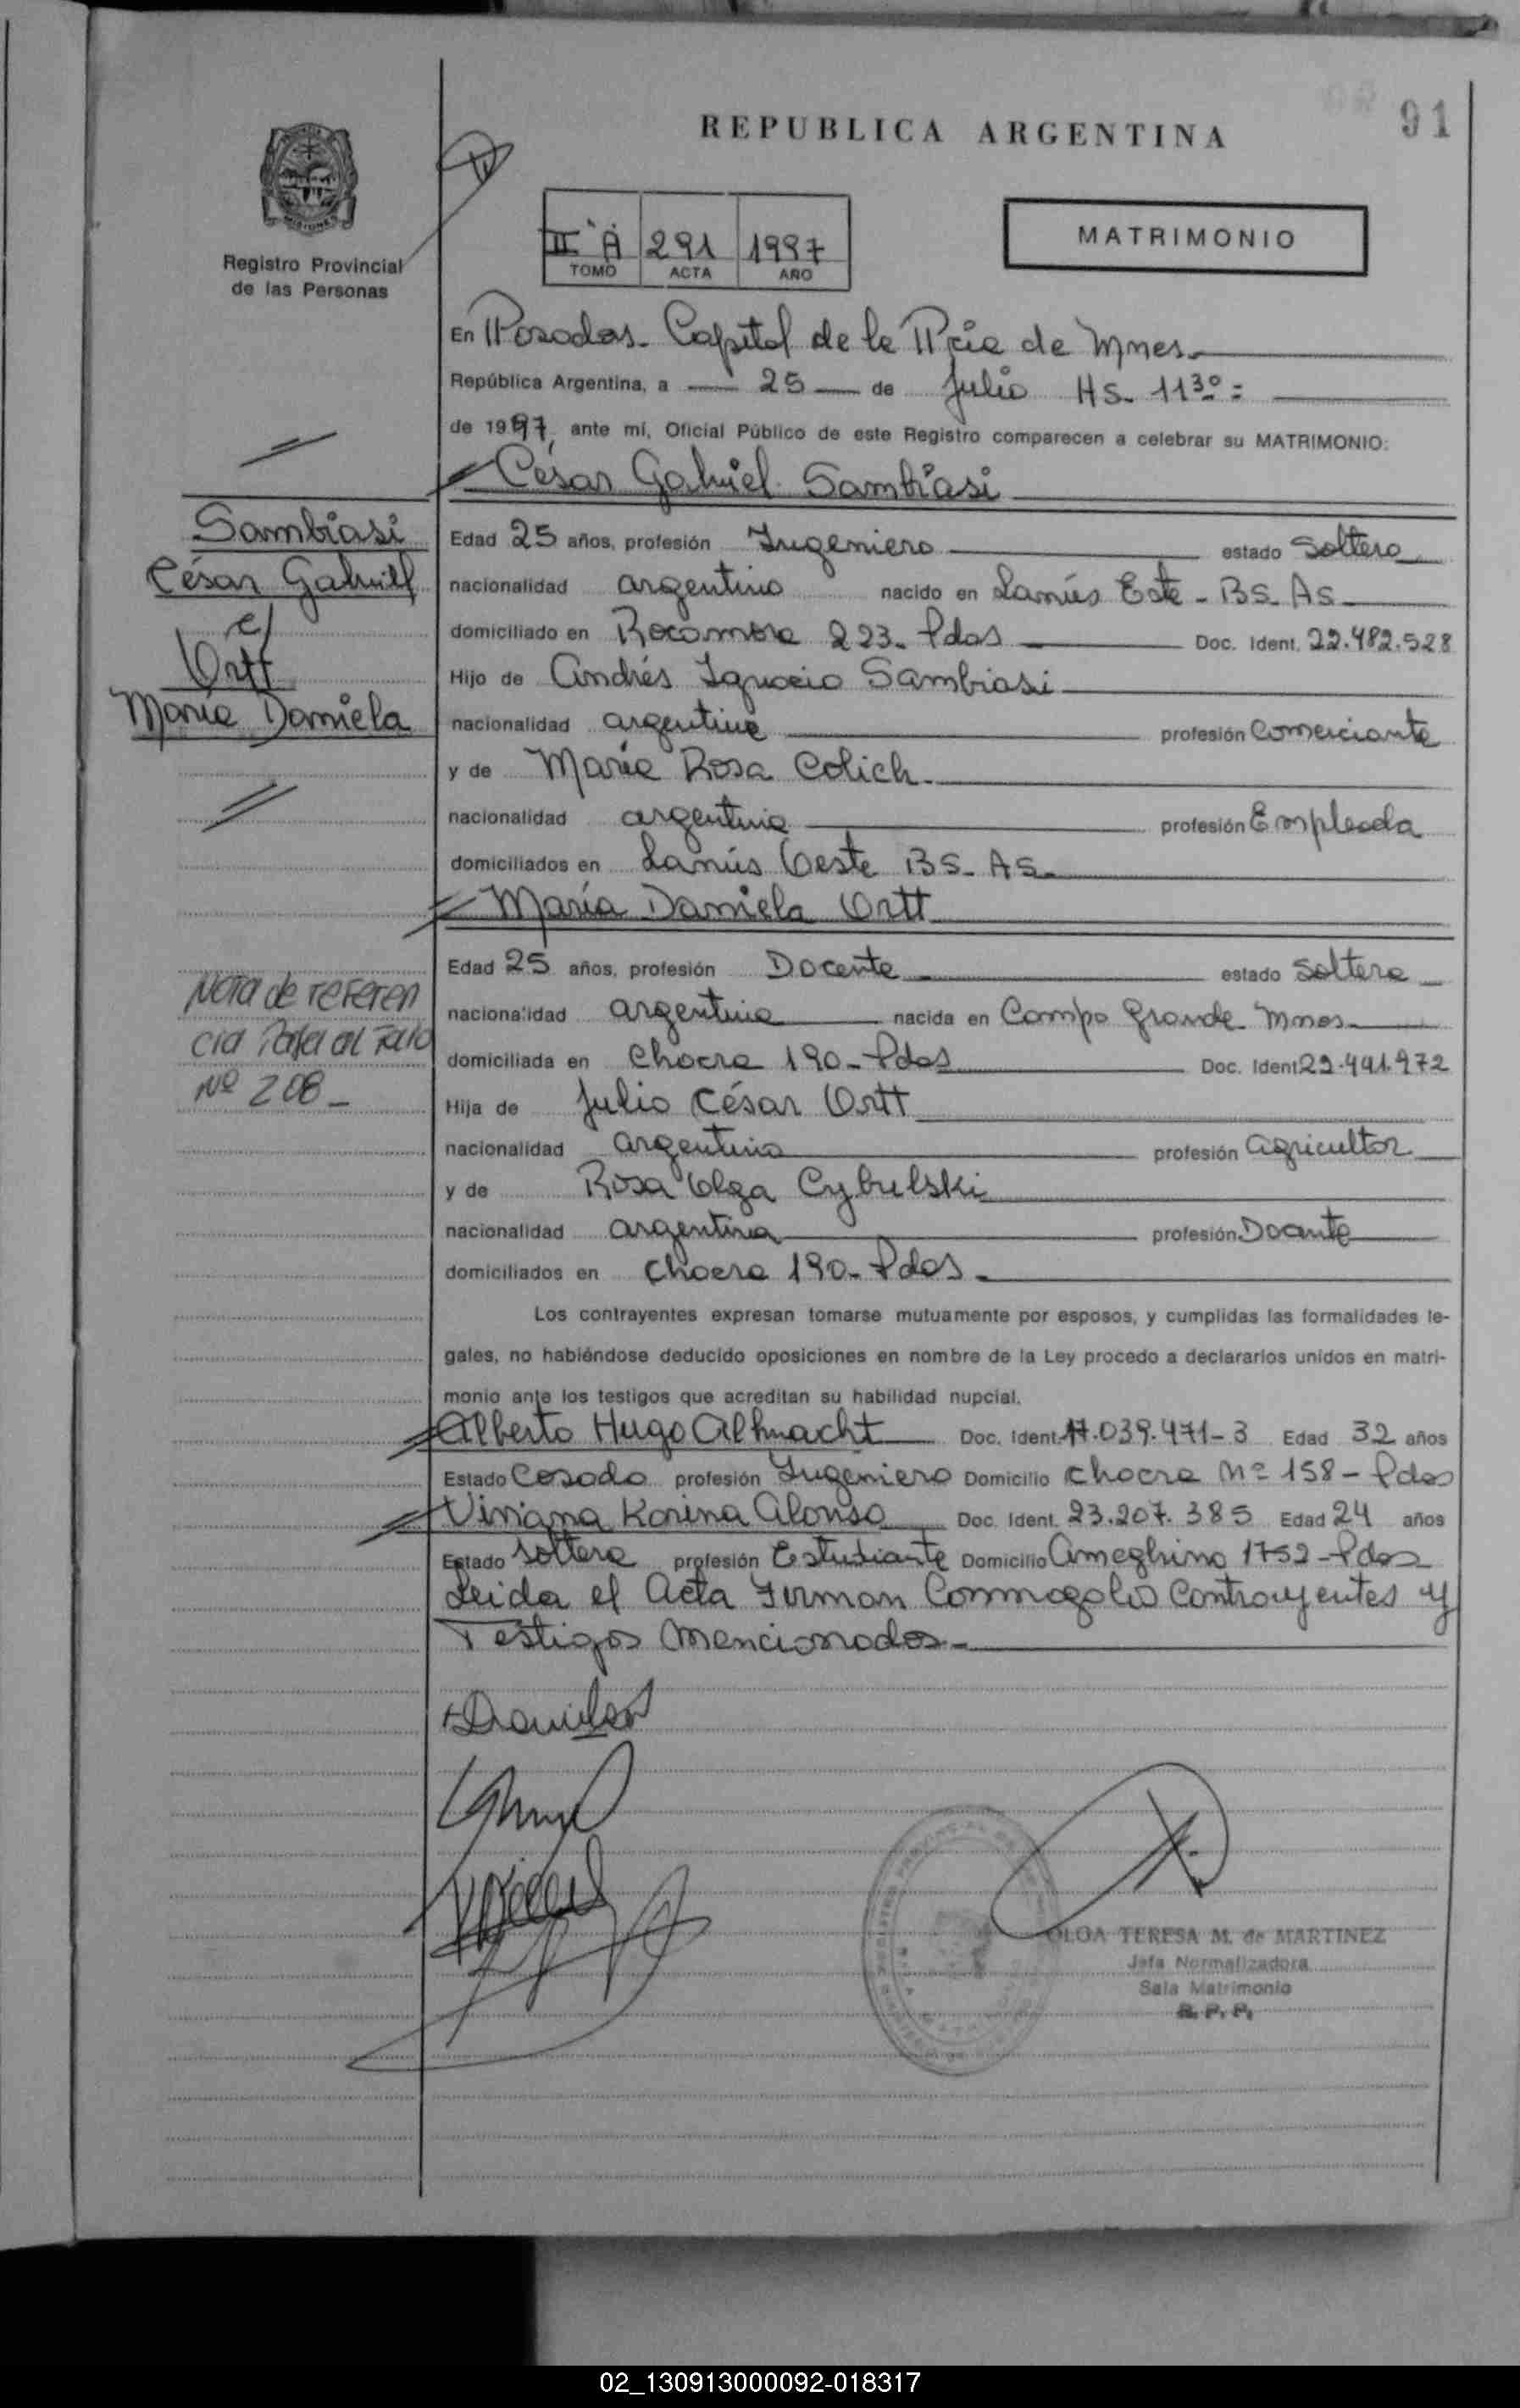 91
REPUBLICA ARGENTINA
Registro Provincial
de las Personas
II "A" 291 1997
TOMO ACTA AÑO
MATRIMONIO
En Posadas. Capital de la Pcia de Mnes.
República Argentina, a 25 de Julio HS. 11 30 =
de 1997, ante mí, Oficial Público de este Registro comparecen a celebrar su MATRIMONIO:
César Gabriel Sambiasi
Sambiasi
César Gabriel
c/
Ortt
María Daniela
Edad 25 años, profesión Ingeniero estado Soltero
nacionalidad argentino nacido en Lanús Este - BS. AS.
domiciliado en Rocamora 223. Pdas Doc. Ident. 22.482.528
Hijo de Andrés Ignacio Sambiasi
nacionalidad argentina profesión Comerciante
y de María Rosa Colich.
nacionalidad argentina profesión Empleada
domiciliados en Lanús Oeste BS. AS.
María Daniela Ortt
Nota de referen
cia Pasa al Folio
Nº 208_
Edad 25 años, profesión Docente estado Soltera
nacionalidad argentina nacida en Campo Grande Mnes.
domiciliada en Chacra 190 - Pdas Doc. Ident. 22.441.972
Hija de Julio César Ortt
nacionalidad argentino profesión Agricultor
y de Rosa Olga Cybulski
nacionalidad argentina profesión Docente
domiciliados en Chacra 190 - Pdas.
Los contrayentes expresan tomarse mutuamente por esposos, y cumplidas las formalidades le-
gales, no habiéndose deducido oposiciones en nombre de la Ley procedo a declararlos unidos en matri-
monio ante los testigos que acreditan su habilidad nupcial.
Alberto Hugo Alhnacht Doc. Ident. 17.039.471-3 Edad 32 años
Estado Casado profesión Ingeniero Domicilio Chacra Nº 158 - Pdas
Viviana Karina Alonso Doc. Ident. 23.207.385 Edad 24 años
Estado Soltera profesión Estudiante Domicilio Ameghino 1752 - Pdas
Leida el Acta Firman Conmogolio Contrayentes y
Testigos Mencionados.
OLGA TERESA M. de MARTINEZ
Jefa Normalizadora
Sala Matrimonio
R. P. P.
02_130913000092-018317